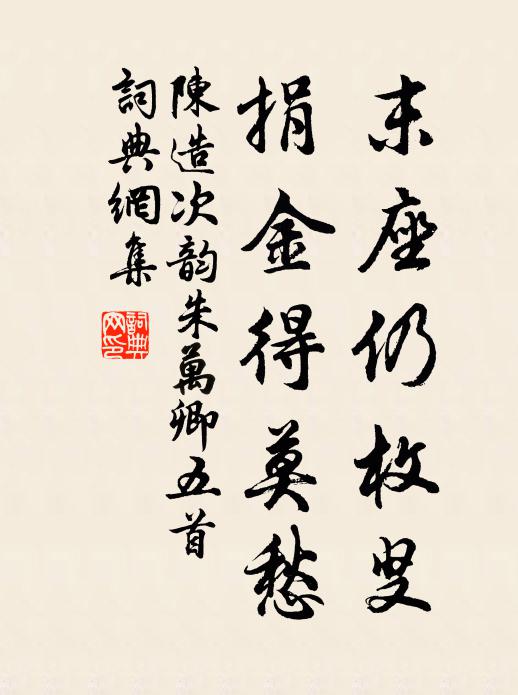 末座仍枚叟
捐金得莫愁
陳造次韵朱萬卿五首
詞典網集
詞典
网印